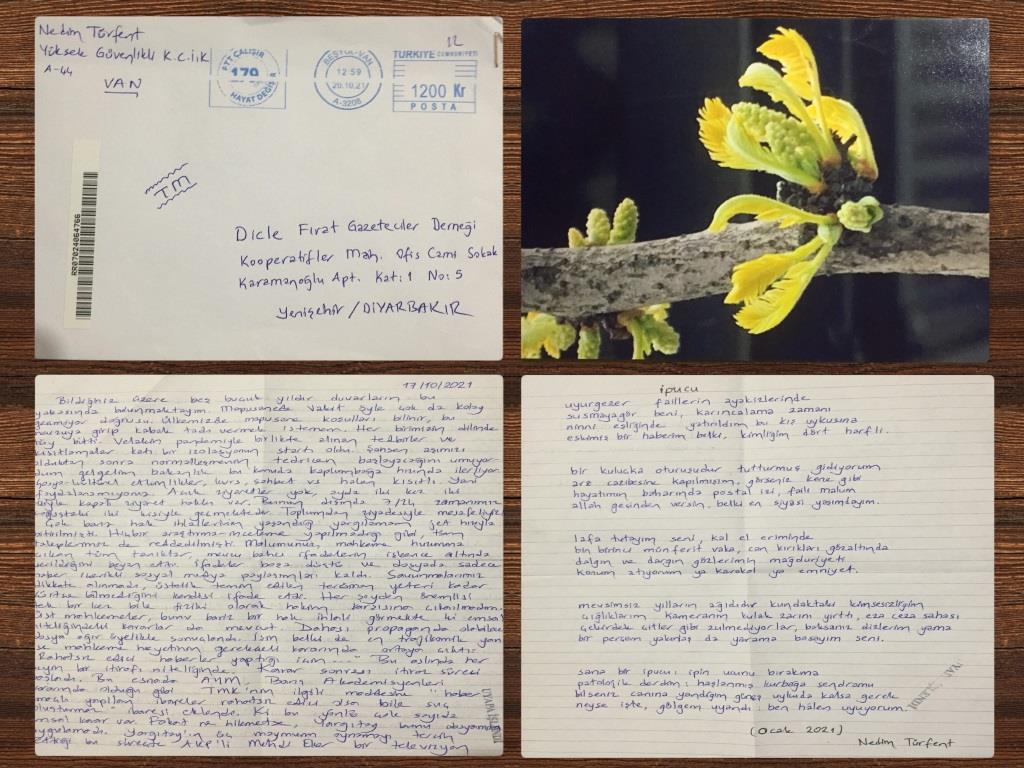 Nedim Türfent
Yüksek Güvenlikli K.C.İ.K
A-44
VAN
PTT ÇALIŞIR
179
HAYAT DEĞİŞİR
12:59
20.10.21
A-3208
12
TÜRKİYE CUMHURİYETİ
1200 Kr
POSTA
RR07024064766
T.M
Dicle Fırat Gazeteciler Derneği
Kooperatifler Mah. Ofis Cami Sokak
Karamanoğlu Apt. Kat:1 No:5
Yenişehir/DİYARBAKIR
17/10/2021
Bildiğiniz üzere beş buçuk yıldır duvarların bu
yakasında bulunmaktayım. Mapusanede vakit öyle çok da kolay
geçmiyor doğrusu. Ülkemizde mapusane koşulları bilinir, bu
mevzuya girip kabak tadı vermek istemem. Her birimizin dilinde
tüy bitti. Velakin pandemiyle birlikte alınan tedbirler ve
kısıtlamalar katı bir izolasyonun startı oldu. Şahsen aşımızı
olduktan sonra normalleşmenin tedricen başlayacağını umuyor-
dum gelgelim bakanlık bu konuda kaplumbağa hızında ilerliyor.
etkinlikler, kurs, sohbet vs halen kısıtlı. Yani
faydalanamıyoruz. Açık ziyaretler yok, ayda iki kez iki
kapalı ziyaret hakkı var. Bunun dışında 7/24 zamanımız
koğuştaki iki kişiyle geçmektedir. Toplumdan ziyadesiyle mesafeliyiz
Çok bariz hak ihlallerinin yaşandığı yargılamam jet hızıyla
bitirilmişti. Hiçbir araştırma-inceleme yapılmadığı gibi, tüm
taleplerimiz de reddedilmişti. Malumunuz, mahkeme huzuruna
çıkan tüm tanıklar, mevzu bahis ifadelerin işkence altında
verildiğini beyan etti. İfadeler boşa düştü ve dosyada sadece
haber içerikli sosyal medya paylaşımları kaldı. Savunmalarımız
dikkate alınmadı, üstelik temin edilen tercüman yeteri kadar
Kürtçe bilmediğini kendisi ifade etti. Her şeyden önemlisi
tek bir kez bile fiziki olarak hakim karşısına çıkarılmadım.
Üst mahkemeler, bunu bariz bir hak ihlali görmekte ki emsal
niteliğindeki kararlar da mevcut. Dahası propaganda olabilecek
dosya ağır üyelikle sonuçlandı. İşin belki de en trajikomik yanı
ise mahkeme heyetinin gerekçeli kararında ortaya çıktı:
Rahatsız edici haberler yaptığı için ... Bu aslında her
şeyin bir itirafı niteliğinde. Karar sonrası itiraz süreci
başladı. Bu esnada AYM, Barış Akademisyenleri
kararında olduğu gibi TMK'nın ilgili maddesine "haber
amaçlı yapılan ibareler rahatsız edici olsa bile suç
oluşturmaz" ibaresi eklendi. Ki bu yönlü çok sayıda
emsal karar var. Fakat ne hikmetse, Yargıtay bunu dosyamda
uygulamadı. Yargıtay'ın üç maymunu oynamayı tercih
ettiği bu süreçte AKP'li Mehdi Eker bir televizyon
ipucu
uyurgezer faillerin ayakizlerinde
susmayagör beni, karıncalama zamanı
ninni eşliğinde yatırıldım bu kış uykusuna
eskimiş bir haberim belki, kimliğim dört harfli.
bir kuluçka oturuşudur tutturmuş gidiyorum
arz cazibesine kapılmışım, görseniz köne gibi
hayatımın baharında postal izi, faili malum
allah gecinden versin, belki en siyasi yaşımdayım.
lafa tutayım seni, kal el eriminde
bin birinci münferit vaka, can kırıkları gözaltında
dalgın ve dargın gözlerimin mağduriyeti
konum atıyorum ya karakol ya emniyet.
mevsimsiz yılların ağıdıdır kundaktaki kimsesizliğim
çığlıklarım kameranın kulak zarını yırttı, eza ceza sahası
çekirdek çitler gibi zulmediyorlar, baksanız dizlerim yama
bir perçem yakamoz da yarama basayım seni.
sana bir ipucu, ipin ucunu bırakma
patolojik derdim: haşlanmış kurbağa sendromu
bilseniz canına yandığım güneş uykuda kalsa gerek
neyse işte, gölgem uyandı: ben hâlen uyuyorum.
(Ocak 2021)
Nedim Türfent